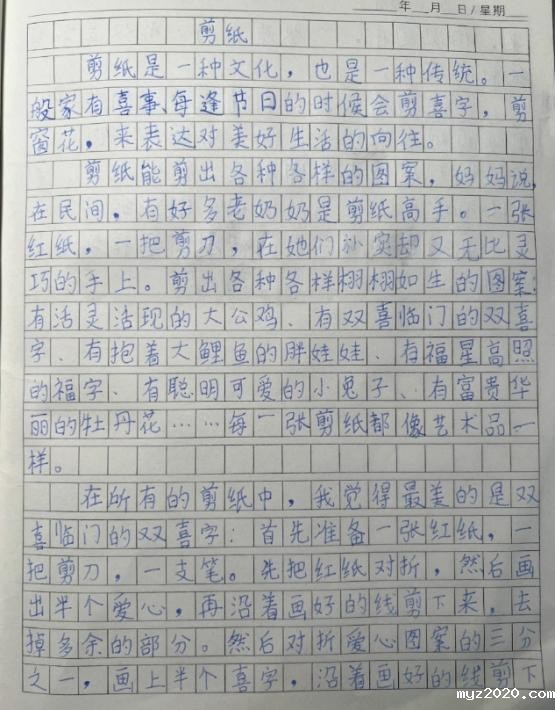 年 月 日/星期
剪纸
剪纸是一种文化，也是一种传统。一
般家有喜事、每逢节日的时候会剪喜字，剪
窗花，来表达对美好生活的向往。
剪纸能剪出各种各样的图案，妈妈说，
在民间，有好多老奶奶是剪纸高手。一张
红纸，一把剪刀，在她们朴实却又无比灵
巧的手上。剪出各种各样栩栩如生的图案：
有活灵活现的大公鸡、有双喜临门的双喜
字、有抱着大鲤鱼的胖娃娃、有福星高照
的福字、有聪明可爱的小兔子、有富贵华
丽的牡丹花……每一张剪纸都像艺术品一
样。
在所有的剪纸中，我觉得最美的是双
喜临门的双喜字：首先准备一张红纸，一
把剪刀，一支笔。先把红纸对折，然后画
出半个爱心，再沿着画好的线剪下来，去
掉多余的部分。然后对折爱心图案的三分
之一，画上半个喜字，沿着画好的线剪下
myz2020.com